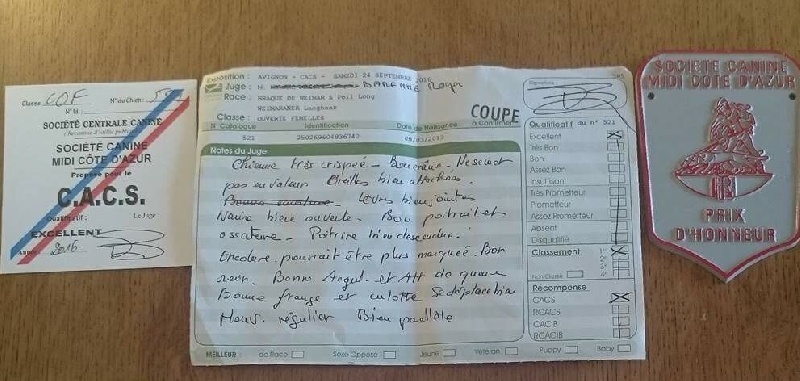 Classe COF N° du Chien: 521
N° M
SOCIÉTÉ CENTRALE CANINE
SOCIÉTÉ CANINE
MIDI CÔTE D'AZUR
Proposé pour le
C.A.C.S.
Qualificatif: Le Juge
EXCELLENT
2016
Exposition: AVIGNON - CACS - SAMEDI 24 SEPTEMBRE 2016
Juge: M. Roger
Race: BRAQUE DE WEIMAR à Poil Long
WEIMARANER Langhaar
Classe: OUVERTE FEMELLES
COUPE
N. Catalogue Identification Date de Naissance à Confirmer
521
Notes du Juge
Chienne très crispée - Bon crâne - Ne se met
pas en valeur Oreilles bien attachées
Lèvres bien jointes
Narine bien ouverte - Bon poitrail et
ossature - Poitrine bien descendue.
Encolure pourrait être plus marquée. Bon
rein. Bonne Angul. et Att de queue
Bonne frange et culotte Se déplace bien
régulier Bien parallèle
MEILLEUR: de Race Sexe Opposé Jeune Vétéran Puppy Baby
Signature
Qualificatif du n° 521
Excellent
Très Bon
Bon
Assez Bon
Insuffisant
Très Prometteur
Prometteur
Assez Prometteur
Absent
Disqualifié
Classement
Non Classé
Récompense
CACS
RCACS
CACIB
RCACIB
SOCIETE CANINE
MIDI COTE D'AZUR
PRIX
D'HONNEUR